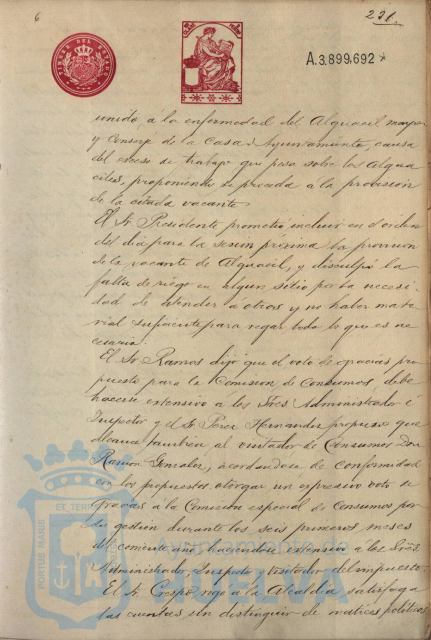 6
231.
TIMBRE DEL ESTADO
A.3,899,692
unido, á la enfermedad del Alguacil mayor
y Conserje de la Casa Ayuntamiento, causa
del exceso de trabajo que pesa sobre los Algua
ciles, proponiendo se proceda á la provision
de la citada vacante.
El Sr. Presidente prometió incluir en el orden
del dia para la sesion próxima la provision
de la vacante de Alguacil, y disculpó la
falta de riego en algun sitio por la necesi
dad de atender á otros y no haber mate
rial suficiente para regar todo lo que es ne
cesario.
El Sr. Ramos dijo que el voto de gracias pro
puesto para la Comision de Consumos, debe
hacerse extensivo á los Sres Administrador é
Inspector y el Sr. Perez Hernandez propuso que
alcance tambien al visitador de Consumos Don
Ramon Gonzalez, acordandose de conformidad
con los propuestos otorgar un expresivo voto de
gracias á la Comision especial de Consumos por
su gestion durante los seis primeros meses
del corriente año haciendole extensivo á los Sres.
Administrador, Inspector y Visitador del impuesto.
El Sr. Crespo, rogó á la Alcaldia satisfaga
las cuentas sin distinguir de matices politicos
PORTUS MARIS
ET TERR
Ayuntamiento de
HUELVA